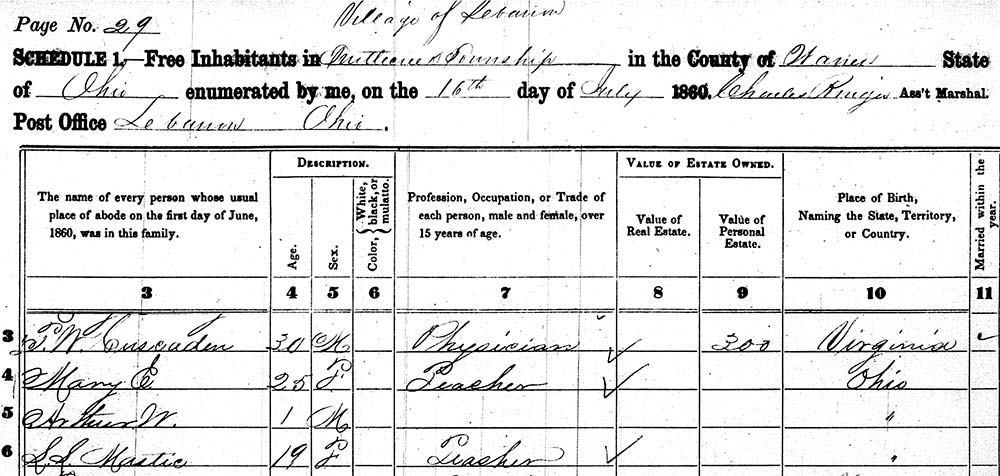 Village of Lebanon
Page No. 29
SCHEDULE 1.—Free Inhabitants in Township in the County of Warren State
of Ohio enumerated by me, on the 16th day of July 1860. Charles Ass't Marshal.
Post Office Lebanon Ohio.
DESCRIPTION. VALUE OF ESTATE OWNED.
The name of every person whose usual place of abode on the first day of June, 1860, was in this family.
Age.
Sex.
Color, { White, black, or mulatto.
Profession, Occupation, or Trade of each person, male and female, over 15 years of age.
Value of Real Estate.
Value of Personal Estate.
Place of Birth, Naming the State, Territory, or Country.
Married within the year.
3 4 5 6 7 8 9 10 11
3 T. W. Cuscaden 30 M Physician ✓ 300 Virginia
4 Mary E 25 F Teacher ✓ Ohio
5 Arthur W. 1 M "
6 S. S. Mastie 19 F Teacher ✓ "